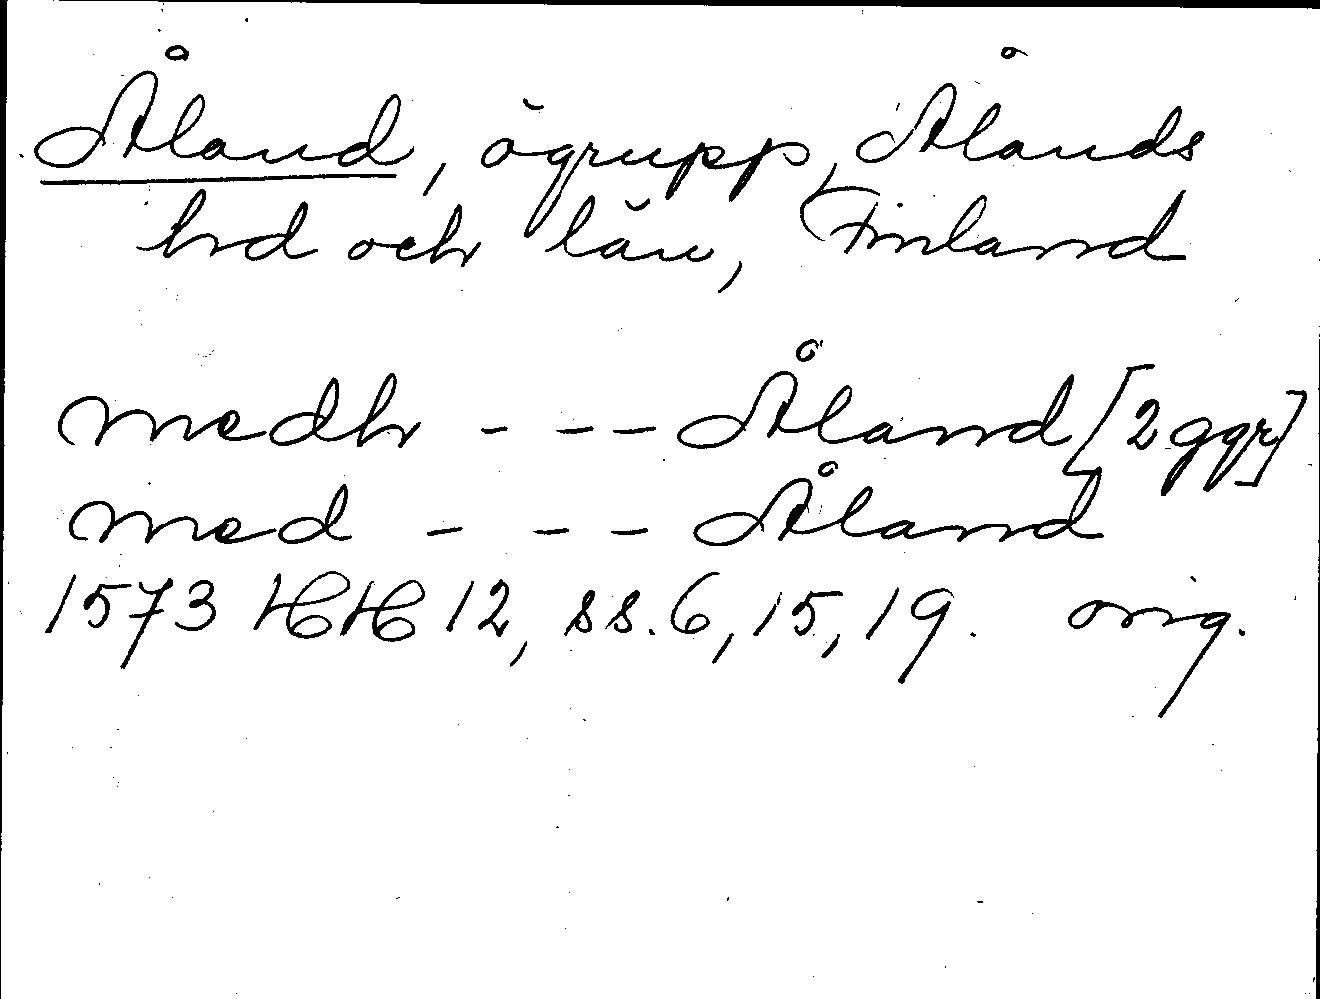 Åland, ögrupp, Ålands
hd och län, Finland
medh - - - Åland [2 ggr]
med - - - Åland
1573 HH 12, ss. 6, 15, 19. orig.